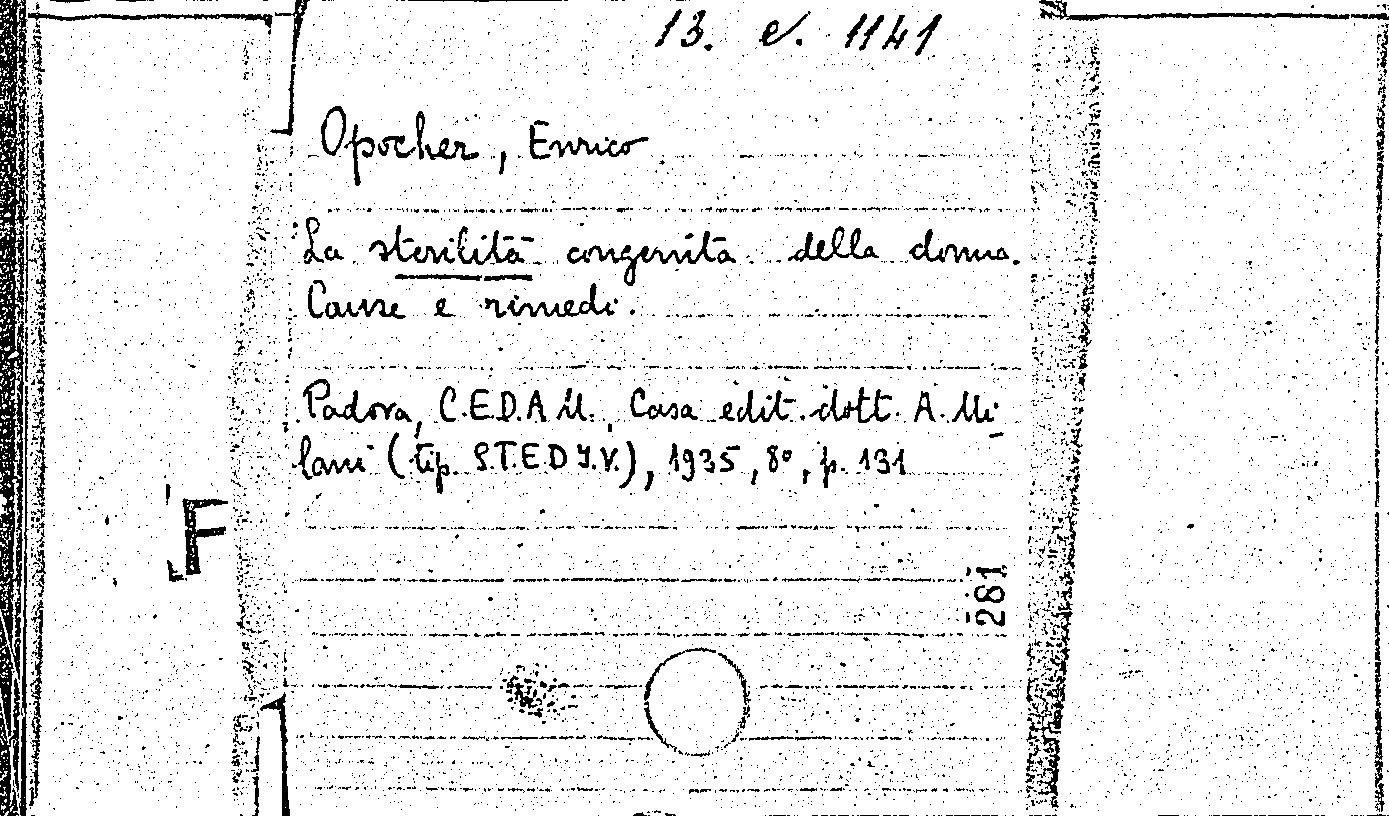 13. e. 1141
Opocher, Enrico
La sterilità congenita della donna.
Cause e rimedi.
Padova, C.E.D.A.M., Casa edit. dott. A. Mi-
lani (tip. S.T.E.D.I.V.), 1935, 8°, p. 131
F
281